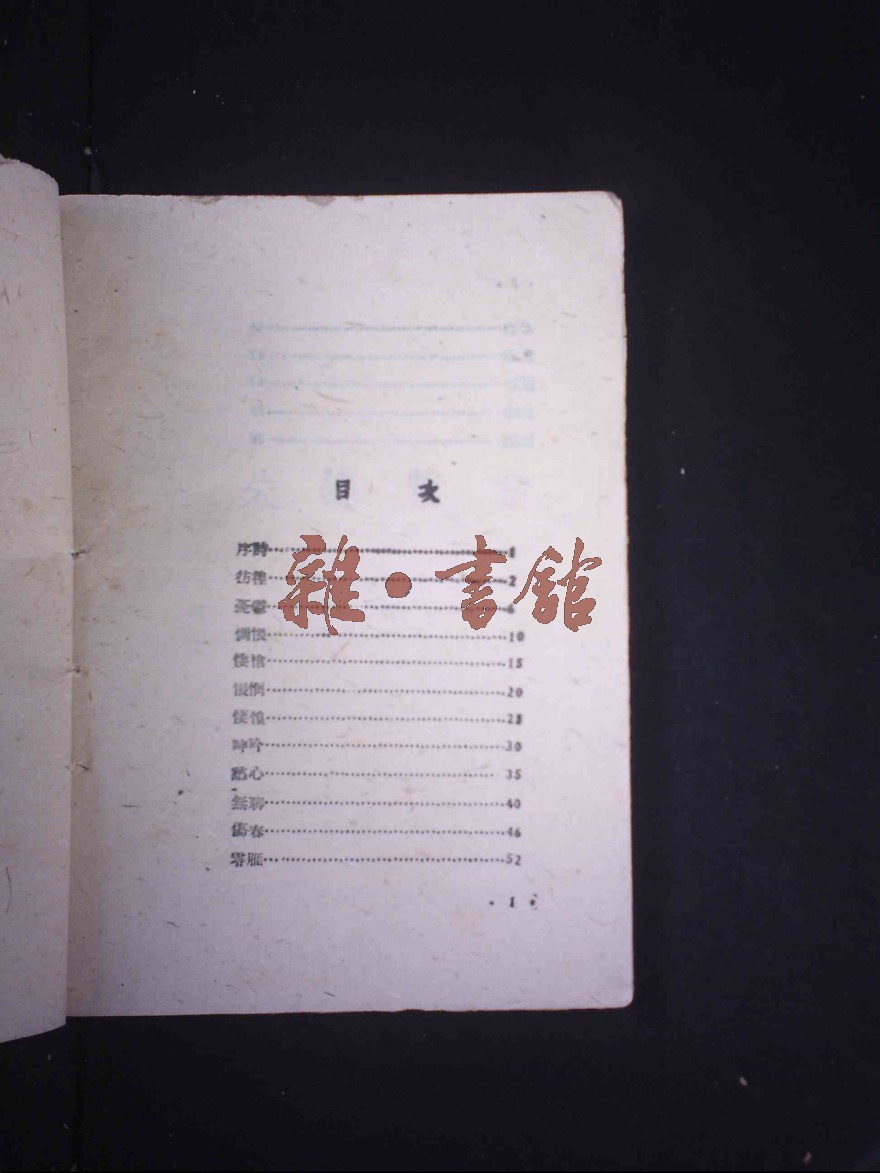 目 次
序詩……1
彷徨……2
憂鬱……6
惆悵……10
悽愴……15
悵惘……20
悽惶……25
呻吟……30
愁心……35
無聊……40
傷春……46
零雁……52
· 1 ·
雜·書館